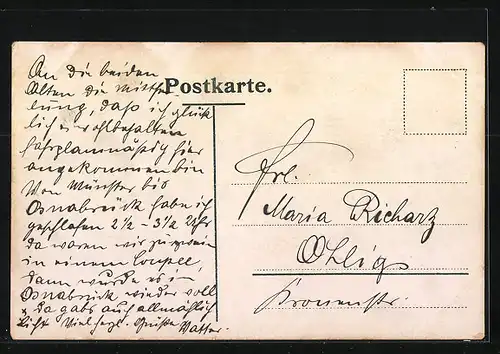 Postkarte.
An die beiden
Alten die Mitthei-
lung, daß ich glück
lich u. wohlbehalten
fahrplanmäßig hier
angekommen bin
Von Münster bis
Osnabrück habe ich
geschlafen 2½ - 3½ Uhr
da waren wir zu zwein
in einem Coupee,
dann wurde es in
Osnabrück wieder voll
u. da gabs auch allmählich
Licht Vielherzl. Grüße Vatter.
Frl.
Maria Richarz
Ohligs
Kronenstr.